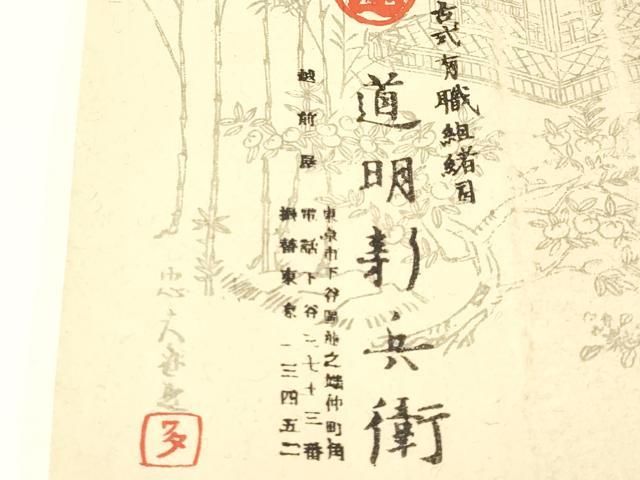 古式有職組緒司
道明新兵衛
東京市下谷區池之端仲町角
電話下谷三七十三番
振替東京一三四五二
越前屋